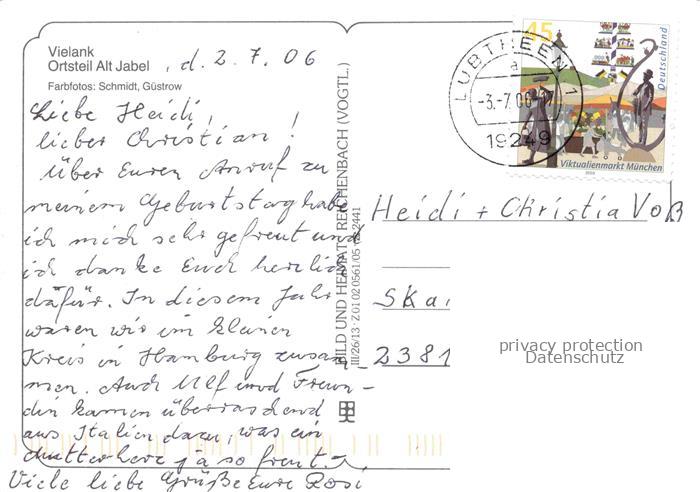 Vielank
Ortsteil Alt Jabel , d. 2. 7. 06
Farbfotos: Schmidt, Güstrow
Liebe Heidi,
lieber Christian!
Über Euren Anruf zu
meinem Geburtstag habe
ich mich sehr gefreut und
ich danke Euch herzlich
dafür. In diesem Jahr
waren wir im kleinen
Kreis in Hamburg zusam
men. Auch Ulf und Freun-
din kamen überraschend
aus Italien dazu, was ein
Mutterherz ja so freut.
Viele liebe Grüße Eure Rosi
BILD UND HEIMAT REICHENBACH (VOGTL.)
III/26/13 · Z 01 02 0561/05
LÜBTHEEN 1
a
-3.-7.06
19249
45
Deutschland
Viktualienmarkt München
Heidi + Christia Voß
Ska
2381
privacy protection
Datenschutz